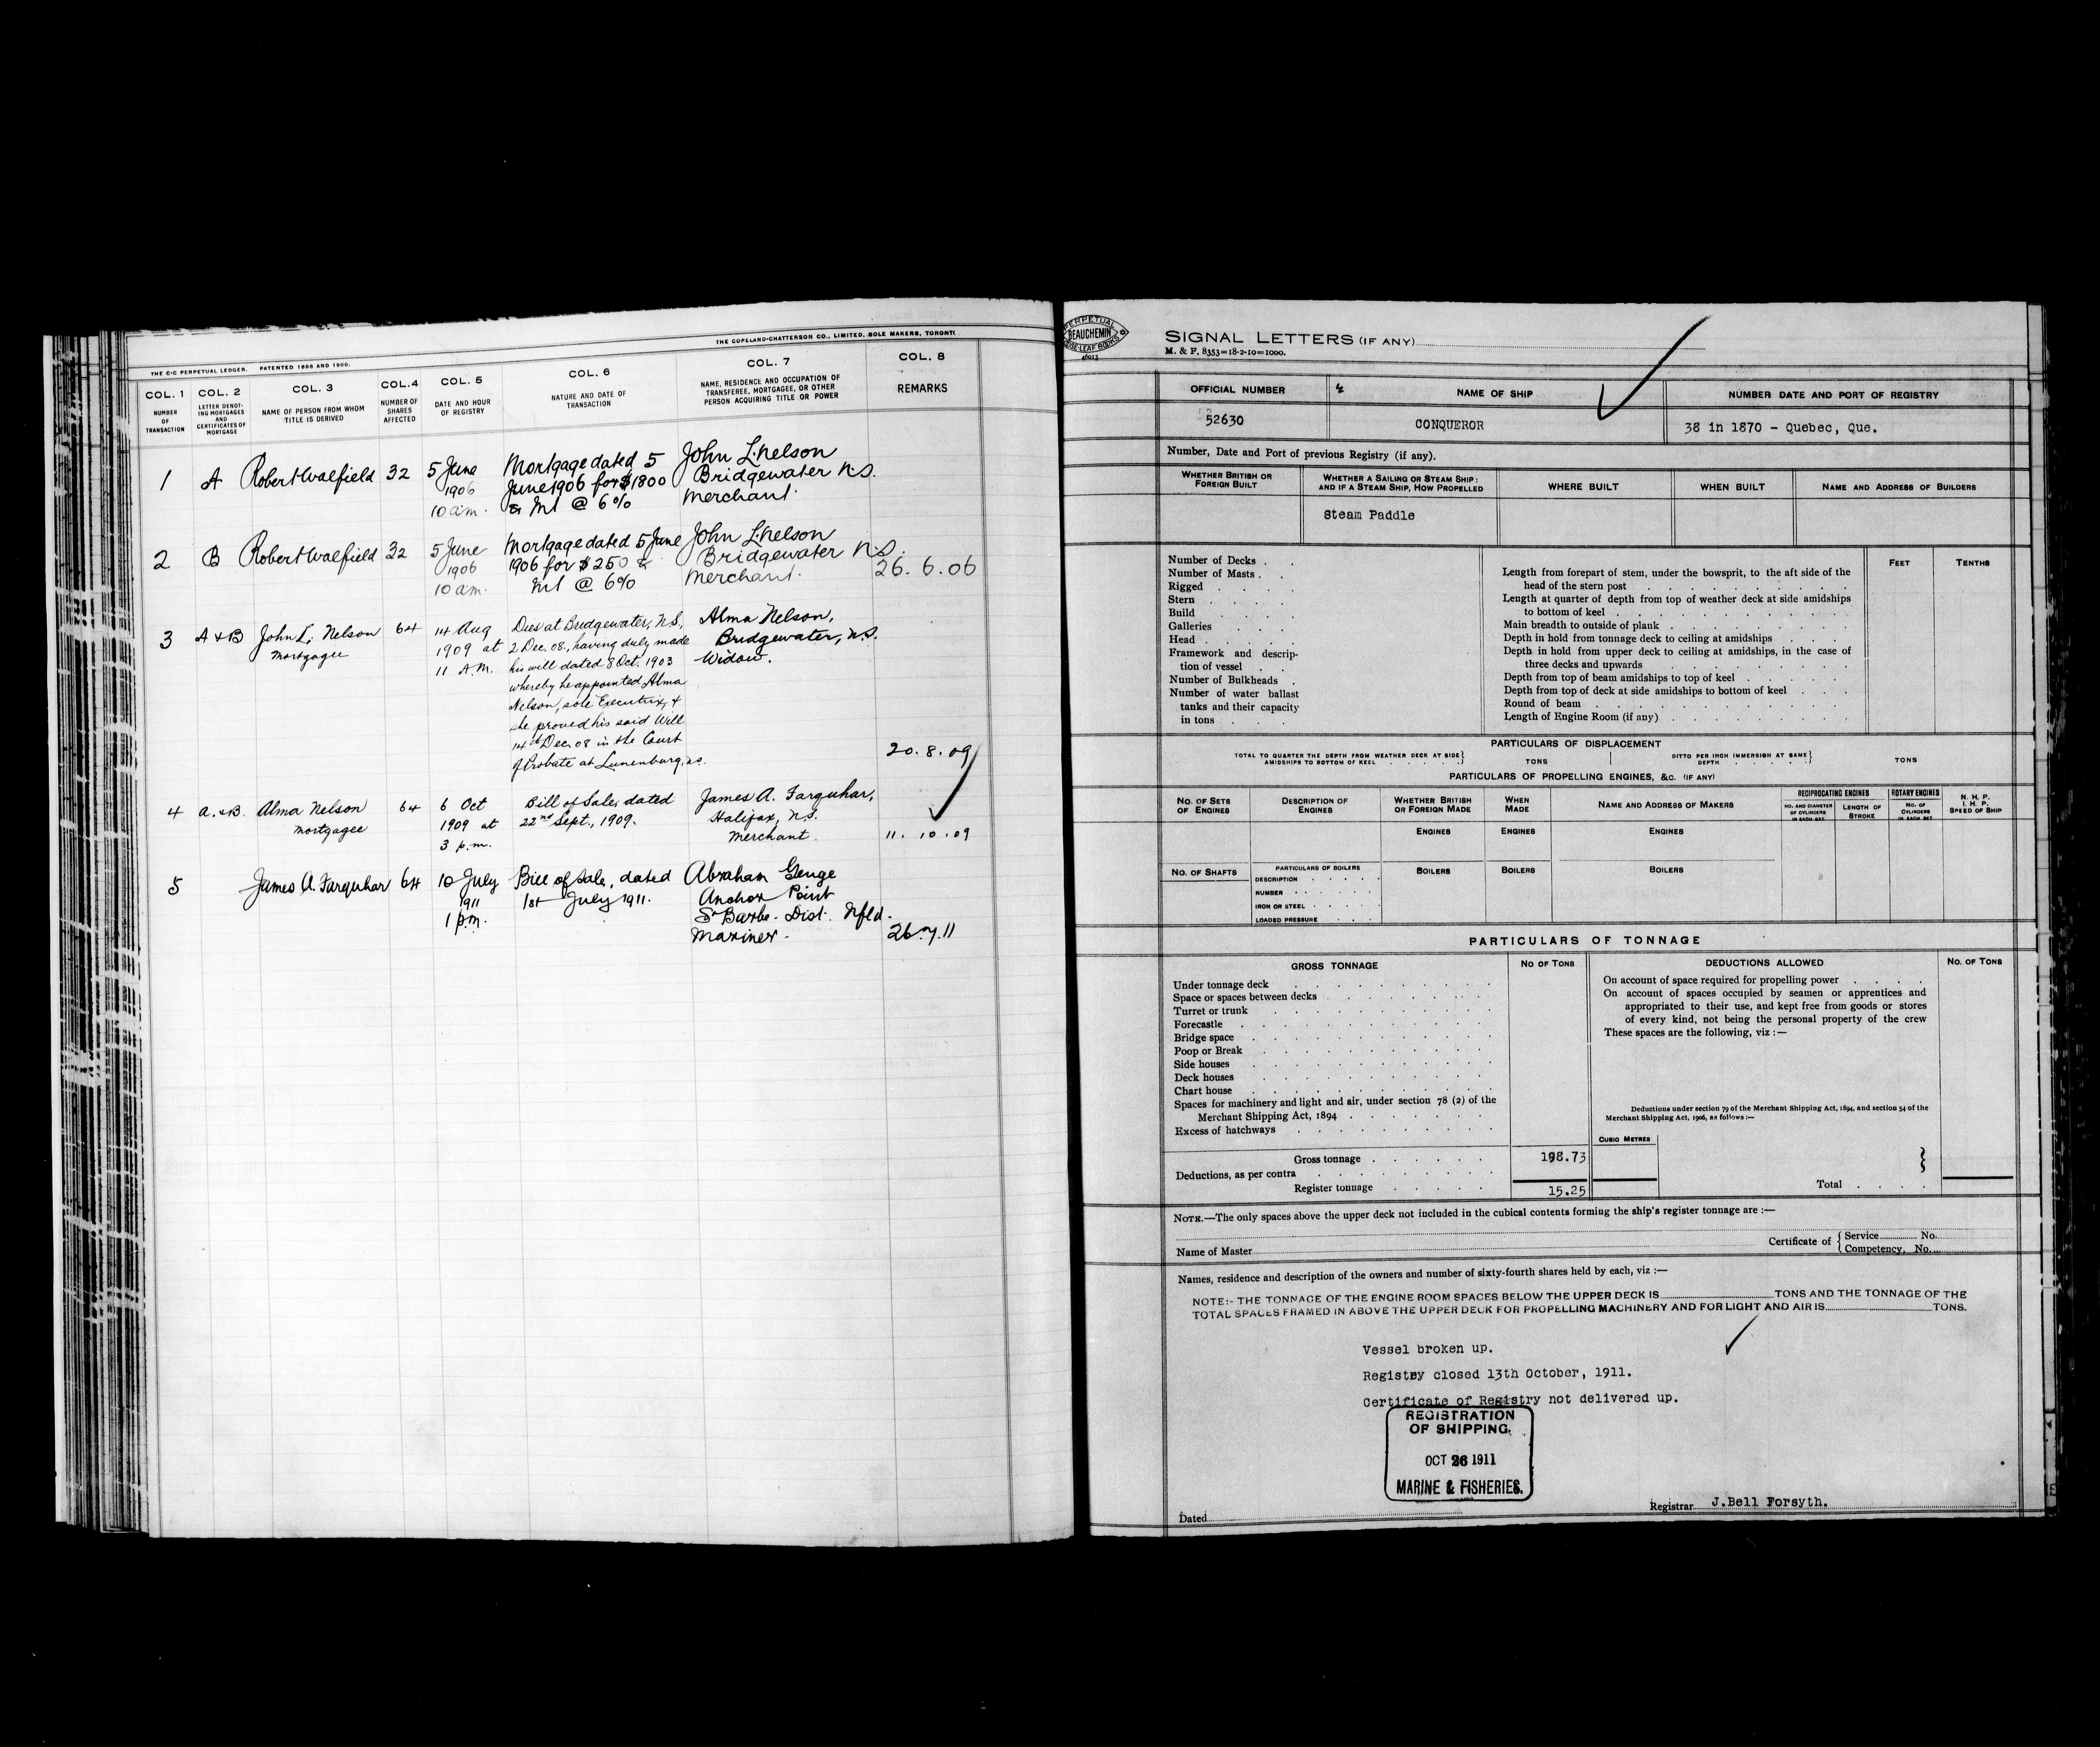 THE COPELAND-CHATTERSON CO., LIMITED, SOLE MAKERS, TORONTO
THE C-C PERPETUAL LEDGER. PATENTED 1896 AND 1900.
COL. 1 COL. 2 COL. 3 COL. 4 COL. 5 COL. 6 COL. 7 COL. 8
NUMBER OF TRANSACTION
LETTER DENOTING MORTGAGES AND CERTIFICATES OF MORTGAGE
NAME OF PERSON FROM WHOM TITLE IS DERIVED
NUMBER OF SHARES AFFECTED
DATE AND HOUR OF REGISTRY
NATURE AND DATE OF TRANSACTION
NAME, RESIDENCE AND OCCUPATION OF TRANSFEREE, MORTGAGEE, OR OTHER PERSON ACQUIRING TITLE OR POWER
REMARKS
1 A Robert Walfield 32 5 June Mortgage dated 5 John L. Nelson
1906 June 1906 for $1800 Bridgewater N.S.
10 am. & Int @ 6% Merchant.
2 B Robert Walfield 32 5 June Mortgage dated 5 June John L. Nelson
1906 1906 for $250 & Bridgewater N.S.
10 am. Int @ 6% Merchant. 26.6.06
3 A & B John L. Nelson 64 14 Aug Dies at Bridgewater, N.S., Alma Nelson,
mortgagee 1909 at 2 Dec. 08, having duly made Bridgewater, N.S.
11 A.M. his will dated 8 Oct. 1903 Widow.
whereby he appointed Alma
Nelson, sole Executrix, &
she proved his said Will
14th Dec. 08 in the Court
of Probate at Lunenburg, N.S. 20.8.09
4 A. & B. Alma Nelson 64 6 Oct Bill of Sale, dated James A. Farquhar,
mortgagee 1909 at 22nd Sept., 1909. Halifax, N.S.
3 p.m. Merchant. 11.10.09
5 James A. Farquhar 64 10 July Bill of Sale, dated Abraham Genge
1911 1st July 1911. Anchor Point
1 p.m. St Barbe. Dist. Nfld.
Mariner. 26.7.11
PERPETUAL
BEAUCHEMIN
LOOSE-LEAF BOOKS
SIGNAL LETTERS (IF ANY)
M. & F. 8353=18-2-10=1000.
OFFICIAL NUMBER NAME OF SHIP NUMBER DATE AND PORT OF REGISTRY
52630 CONQUEROR 38 in 1870 - Quebec, Que.
Number, Date and Port of previous Registry (if any).
WHETHER BRITISH OR FOREIGN BUILT
WHETHER A SAILING OR STEAM SHIP: AND IF A STEAM SHIP, HOW PROPELLED
WHERE BUILT WHEN BUILT NAME AND ADDRESS OF BUILDERS
Steam Paddle
Number of Decks
Number of Masts
Rigged
Stern
Build
Galleries
Head
Framework and descrip-
tion of vessel
Number of Bulkheads
Number of water ballast
tanks and their capacity
in tons
FEET TENTHS
Length from forepart of stem, under the bowsprit, to the aft side of the
head of the stern post
Length at quarter of depth from top of weather deck at side amidships
to bottom of keel
Main breadth to outside of plank
Depth in hold from tonnage deck to ceiling at amidships
Depth in hold from upper deck to ceiling at amidships, in the case of
three decks and upwards
Depth from top of beam amidships to top of keel
Depth from top of deck at side amidships to bottom of keel
Round of beam
Length of Engine Room (if any)
PARTICULARS OF DISPLACEMENT
TOTAL TO QUARTER THE DEPTH FROM WEATHER DECK AT SIDE AMIDSHIPS TO BOTTOM OF KEEL TONS
DITTO PER INCH IMMERSION AT SAME DEPTH TONS
PARTICULARS OF PROPELLING ENGINES, &C. (IF ANY)
NO. OF SETS OF ENGINES
DESCRIPTION OF ENGINES
WHETHER BRITISH OR FOREIGN MADE
WHEN MADE
NAME AND ADDRESS OF MAKERS
RECIPROCATING ENGINES ROTARY ENGINES
NO. AND DIAMETER OF CYLINDERS IN EACH SET
LENGTH OF STROKE
NO. OF CYLINDERS IN EACH SET
N. H. P.
I. H. P.
SPEED OF SHIP
ENGINES ENGINES ENGINES
NO. OF SHAFTS
PARTICULARS OF BOILERS
BOILERS BOILERS BOILERS
DESCRIPTION
NUMBER
IRON OR STEEL
LOADED PRESSURE
PARTICULARS OF TONNAGE
GROSS TONNAGE NO OF TONS DEDUCTIONS ALLOWED NO. OF TONS
Under tonnage deck
Space or spaces between decks
Turret or trunk
Forecastle
Bridge space
Poop or Break
Side houses
Deck houses
Chart house
Spaces for machinery and light and air, under section 78 (2) of the
Merchant Shipping Act, 1894
Excess of hatchways
On account of space required for propelling power
On account of spaces occupied by seamen or apprentices and
appropriated to their use, and kept free from goods or stores
of every kind, not being the personal property of the crew
These spaces are the following, viz :—
Deductions under section 79 of the Merchant Shipping Act, 1894, and section 54 of the
Merchant Shipping Act, 1906, as follows :—
CUBIC METRES
Gross tonnage 198.73
Deductions, as per contra
Register tonnage 15.25 Total
NOTE.—The only spaces above the upper deck not included in the cubical contents forming the ship's register tonnage are :—
Name of Master
Certificate of { Service No.
Competency, No.
Names, residence and description of the owners and number of sixty-fourth shares held by each, viz :—
NOTE:- THE TONNAGE OF THE ENGINE ROOM SPACES BELOW THE UPPER DECK IS TONS AND THE TONNAGE OF THE
TOTAL SPACES FRAMED IN ABOVE THE UPPER DECK FOR PROPELLING MACHINERY AND FOR LIGHT AND AIR IS TONS.
Vessel broken up.
Registry closed 13th October, 1911.
Certificate of Registry not delivered up.
REGISTRATION
OF SHIPPING.
OCT 26 1911
MARINE & FISHERIES.
Registrar J.Bell Forsyth.
Dated